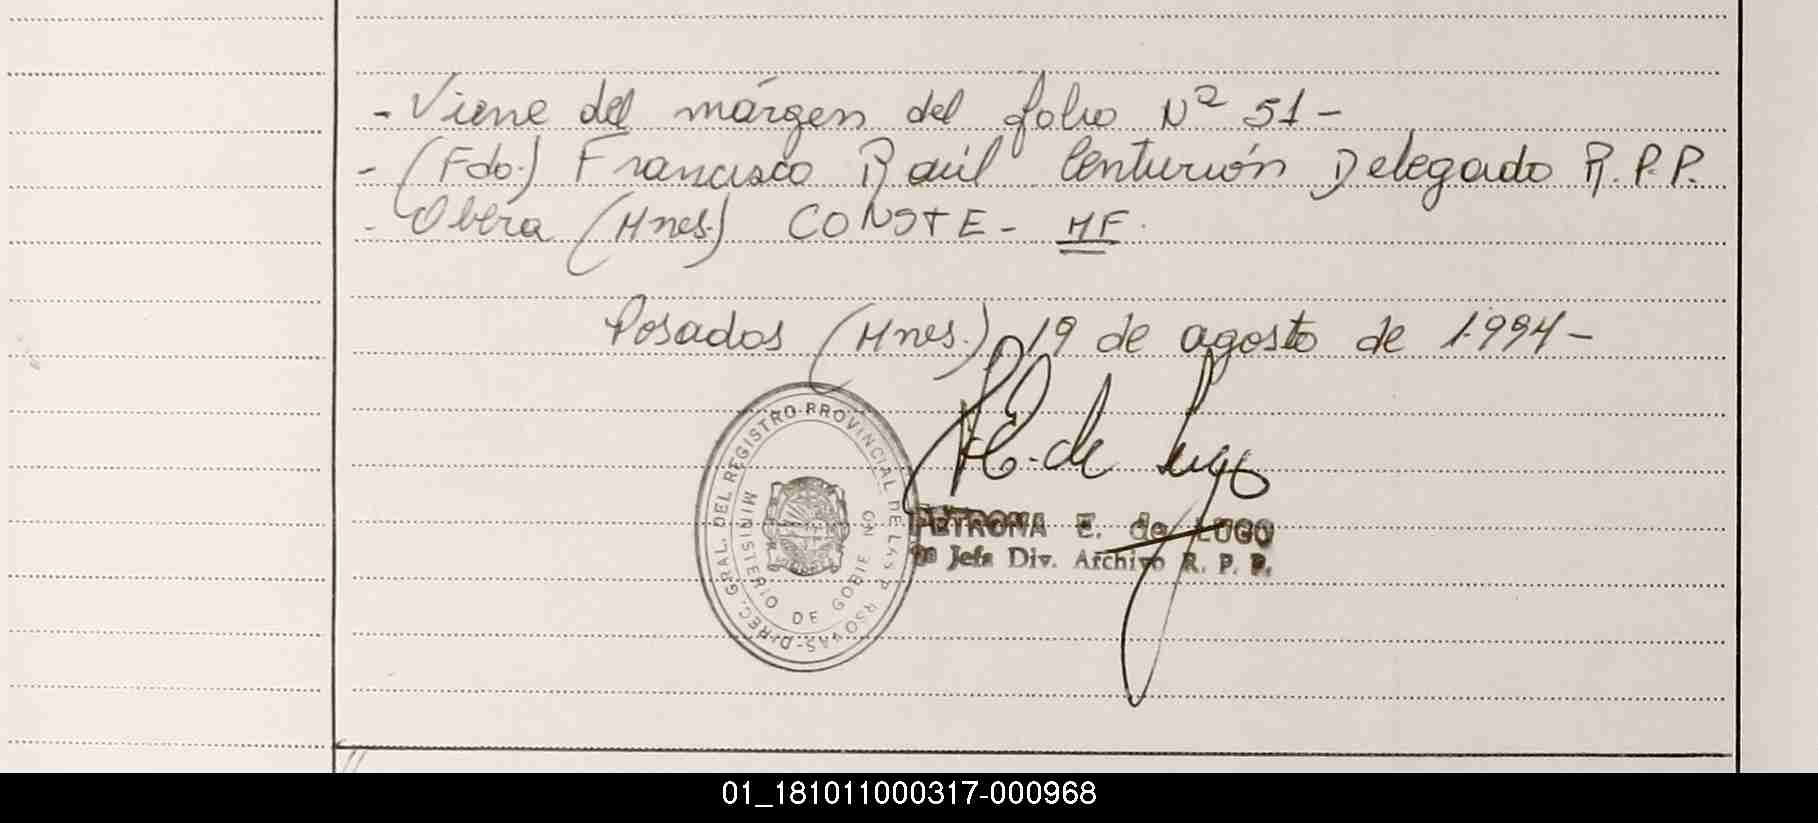 - Viene del márgen del folio Nº 51 -
- (Fdo.) Francisco Raúl Centurión Delegado R.P.P.
- Obera (Mnes.) CONSTE - MF.
Posadas (Mnes.) 19 de agosto de 1.994 -
P.E. de Lugo
PETRONA E. de LUGO
Jefa Div. Archivo R. P. P.
DIREC. GRAL. DEL REGISTRO PROVINCIAL DE LAS P RSONAS
MINISTERIO DE GOBIE NO
01_181011000317-000968